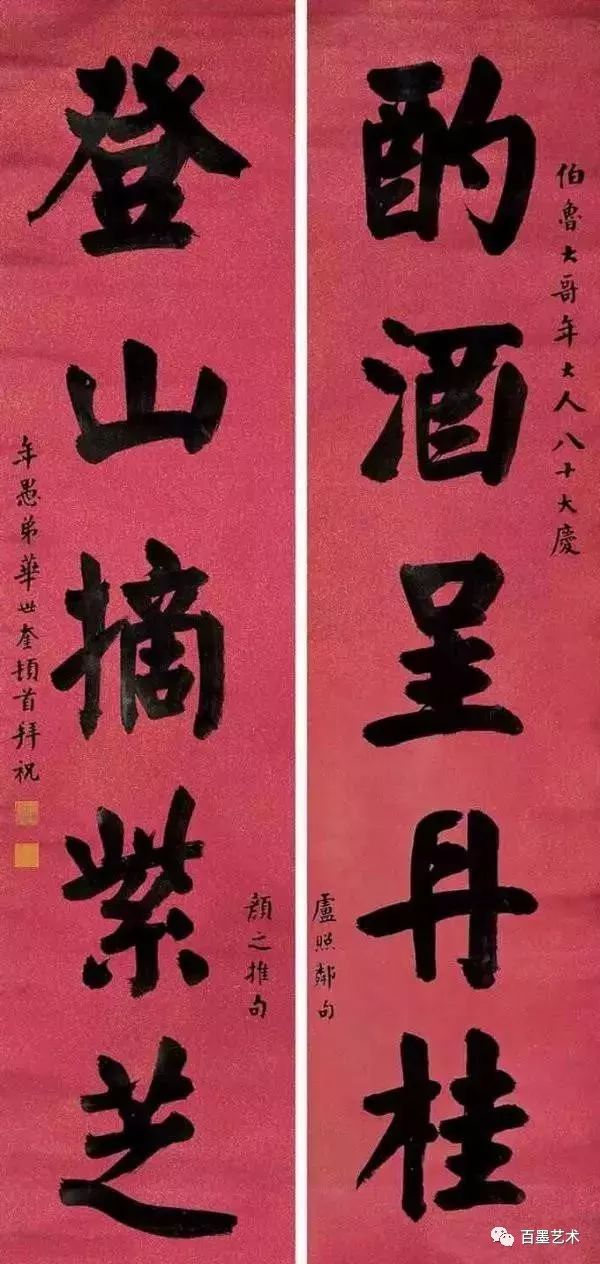 伯魯大哥年大人八十大慶
酌酒呈丹桂
盧照鄰句
登山摘紫芝
顏之推句
年愚弟華世奎頓首拜祝
百墨艺术